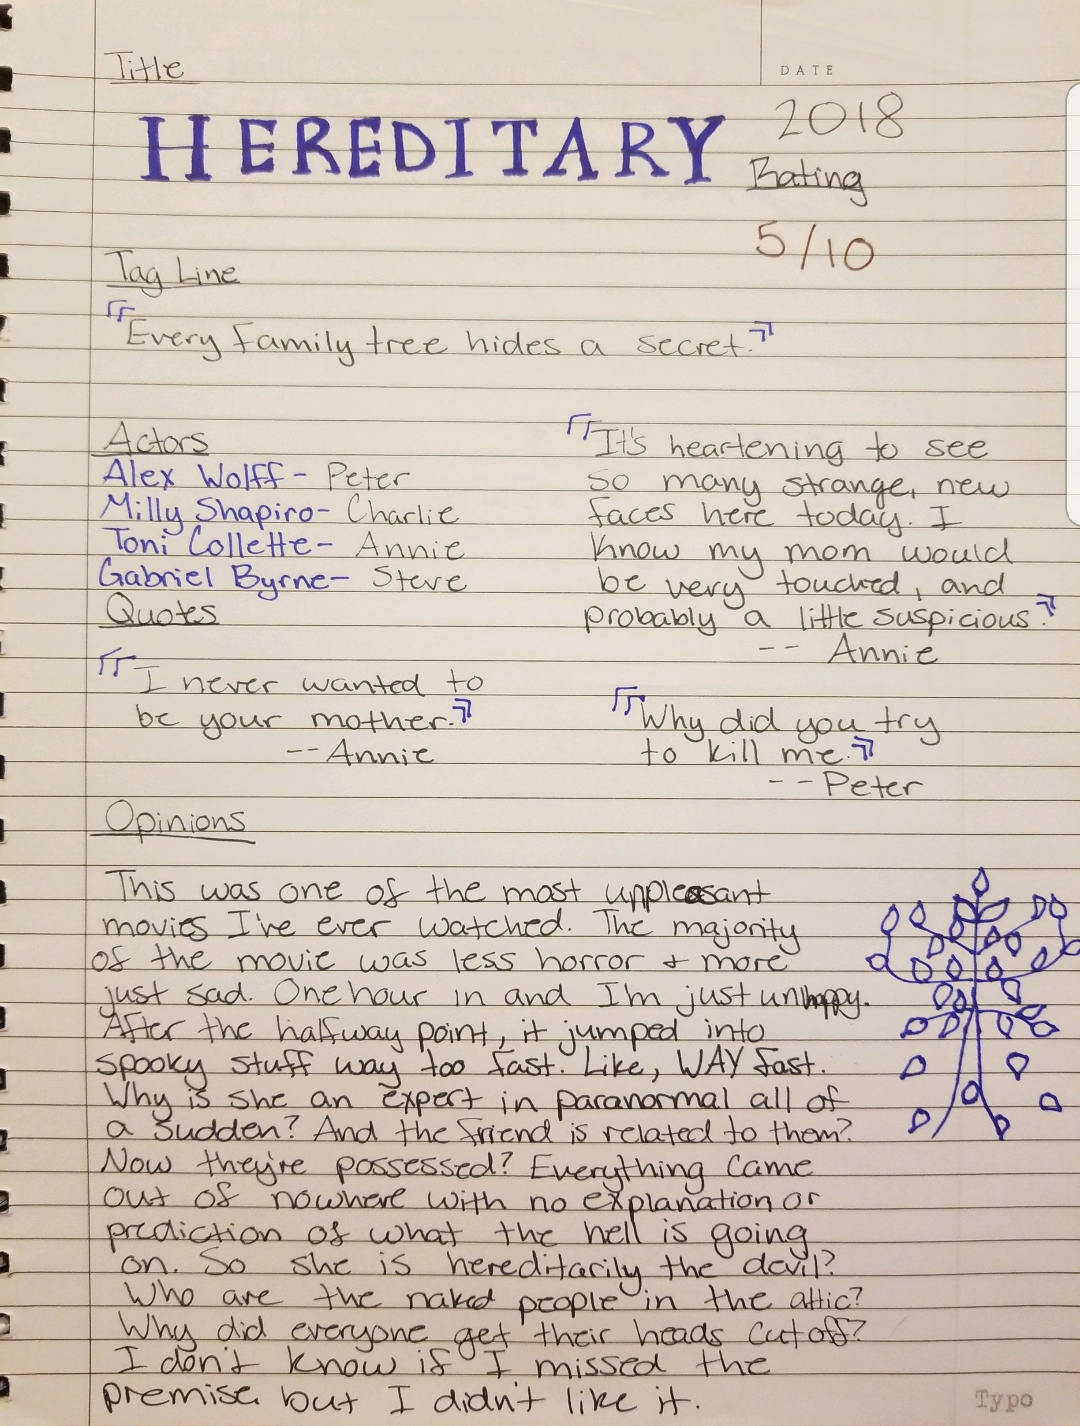 Title
DATE
HEREDITARY
2018
Rating
5/10
Tag Line
"Every family tree hides a secret."
Actors
Alex Wolff- Peter
Milly Shapiro- Charlie
Toni Collette- Annie
Gabriel Byrne- Steve
Quotes
"I never wanted to
be your mother."
-- Annie
"It's heartening to see
so many strange, new
faces here today. I
know my mom would
be very touched, and
probably a little suspicious."
-- Annie
"Why did you try
to kill me."
-- Peter
Opinions
This was one of the most uppleasant
movies I've ever watched. The majority
of the movie was less horror + more
just sad. One hour in and I'm just unhappy.
After the halfway point, it jumped into
spooky stuff way too fast. Like, WAY fast.
Why is she an expert in paranormal all of
a sudden? And the friend is related to them?
Now they're possessed? Everything came
out of nowhere with no explanation or
prediction of what the hell is going
on. So she is hereditarily the devil?
Who are the naked people in the attic?
Why did everyone get their heads cut off?
I don't know if I missed the
premise but I didn't like it.
Typo